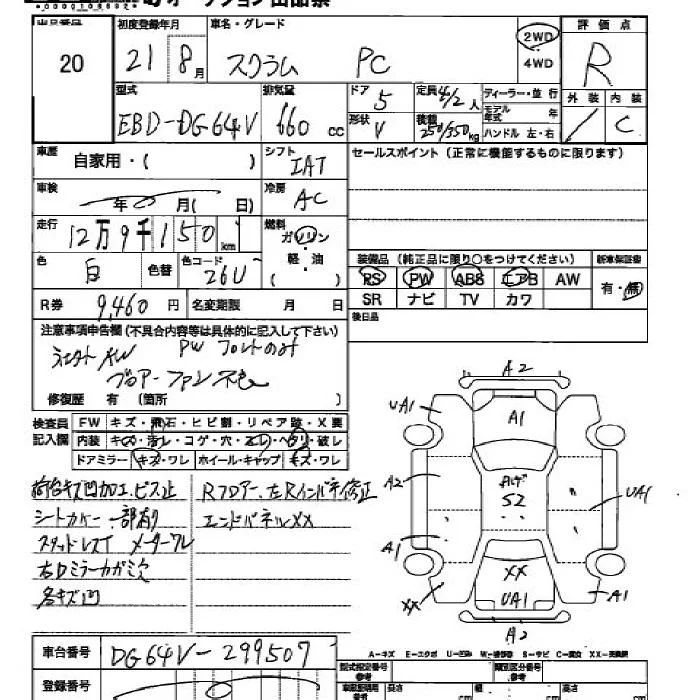 出品番号 初度登録年月 車名・グレード 評価点
20 21 8月 スクラム PC 2WD 4WD R
型式 排気量 ドア 定員 ディーラー・並行 外装 内装
EBD-DG64V 660cc 5 4/2人 モデル年式 年 C
形状 V 積載 250/350kg ハンドル 左・右
車歴 自家用・( ) シフト IAT セールスポイント(正常に機能するものに限ります)
車検 年 月( 日) 冷房 AC
走行 12万9千150km 燃料 ガソリン・軽・油 ( )
色 白 色替 色コード 26U 装備品(純正品に限り○をつけてください) 新車保証書
PS PW ABS エアB AW 有・無
R券 9,460円 名変期限 月 日 SR ナビ TV カワ
注意事項申告欄(不具合内容等は具体的に記入して下さい) 後日品
AW PW フロントのみ
ブロアーファン
修復歴 有 (箇所 )
検査員記入欄 FW キズ・飛石・ヒビ割・リペア跡・X要
内装 キズ・汚レ・コゲ・穴・スレ・ヘタリ・破レ
ドアミラー キズ・ワレ ホイール・キャップ キズ・ワレ
荷台キズ凹加工、ビス止 Rフロアー、左Rインパネ修正
シートカバー一部有り エンドパネルXX
スタッドレス メーターワレ
右Dミラーカガミ欠
各キズ凹
A2
UA1 A1
A2 S2 UA1
A1 XX UA1 A1
XX A2
A-キズ E-エクボ U-凹み W-補修跡 S-サビ C-腐食 XX-交換済
車台番号 DG64V-299507 型式指定番号 参考 類別区分番号 参考
登録番号 長さ cm 幅 cm 高さ cm